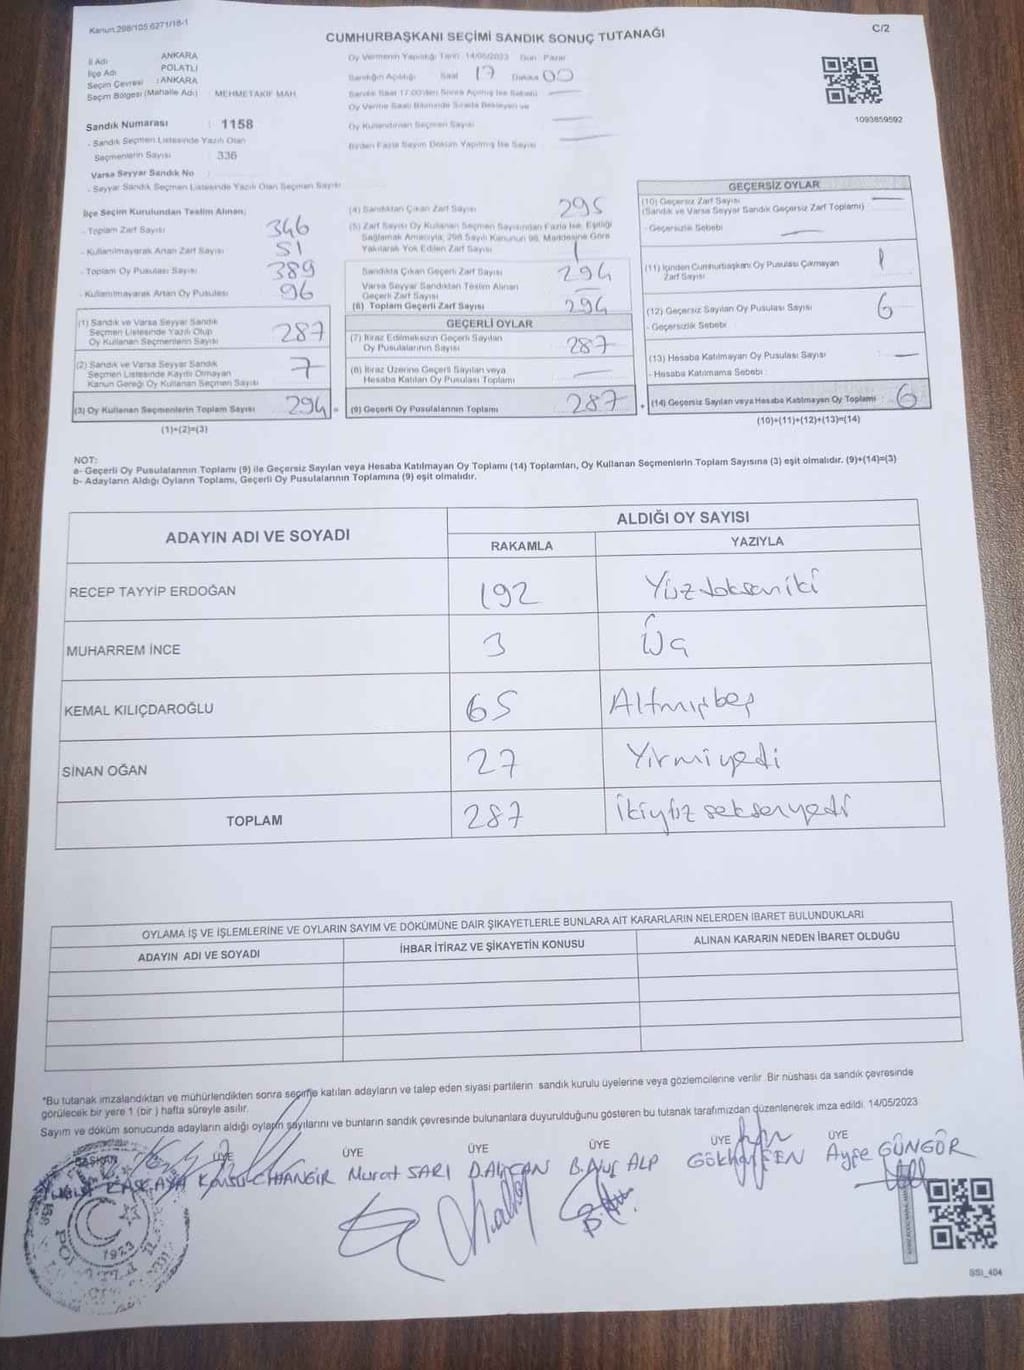 Kanun:298/105,6271/18-1
C/2
CUMHURBAŞKANI SEÇİMİ SANDIK SONUÇ TUTANAĞI
İl Adı ANKARA
İlçe Adı POLATLI
Seçim Çevresi : ANKARA
Seçim Bölgesi (Mahalle Adı) MEHMETAKİF MAH.
Oy Vermenin Yapıldığı Tarih 14/05/2023 Gün Pazar
Sandığın Açıldığı Saat 17 Dakika 00
Sandık Saat 17:00'den Sonra Açılmış İse Sebebi
Oy Verme Saati Bitiminde Sırada Bekleyen ve
Oy Kullandırılan Seçmen Sayısı
Birden Fazla Sayım Döküm Yapılmış İse Sayısı
1093859592
Sandık Numarası : 1158
- Sandık Seçmen Listesinde Yazılı Olan
Seçmenlerin Sayısı 336
Varsa Seyyar Sandık No
- Seyyar Sandık Seçmen Listesinde Yazılı Olan Seçmen Sayısı
İlçe Seçim Kurulundan Teslim Alınan;
- Toplam Zarf Sayısı 346
- Kullanılmayarak Artan Zarf Sayısı 51
- Toplam Oy Pusulası Sayısı 389
- Kullanılmayarak Artan Oy Pusulası 96
(1) Sandık ve Varsa Seyyar Sandık
Seçmen Listesinde Yazılı Olup
Oy Kullanan Seçmenlerin Sayısı 287
(2) Sandık ve Varsa Seyyar Sandık
Seçmen Listesinde Kayıtlı Olmayan
Kanun Gereği Oy Kullanan Seçmen Sayısı 7
(3) Oy Kullanan Seçmenlerin Toplam Sayısı 294 =
(1)+(2)=(3)
(4) Sandıktan Çıkan Zarf Sayısı 295
(5) Zarf Sayısı Oy Kullanan Seçmen Sayısından Fazla İse, Eşitliği
Sağlamak Amacıyla, 298 Sayılı Kanunun 98. Maddesine Göre
Yakılarak Yok Edilen Zarf Sayısı 1
Sandıkta Çıkan Geçerli Zarf Sayısı 294
Varsa Seyyar Sandıktan Teslim Alınan
Geçerli Zarf Sayısı
(6) Toplam Geçerli Zarf Sayısı 294
GEÇERLİ OYLAR
(7) İtiraz Edilmeksizin Geçerli Sayılan
Oy Pusulalarının Sayısı 287
(8) İtiraz Üzerine Geçerli Sayılan veya
Hesaba Katılan Oy Pusulası Toplamı
(9) Geçerli Oy Pusulalarının Toplamı 287 +
GEÇERSİZ OYLAR
(10) Geçersiz Zarf Sayısı
(Sandık ve Varsa Seyyar Sandık Geçersiz Zarf Toplamı)
- Geçersizlik Sebebi
(11) İçinden Cumhurbaşkanı Oy Pusulası Çıkmayan
Zarf Sayısı 1
(12) Geçersiz Sayılan Oy Pusulası Sayısı 6
- Geçersizlik Sebebi
(13) Hesaba Katılmayan Oy Pusulası Sayısı
- Hesaba Katılmama Sebebi
(14) Geçersiz Sayılan veya Hesaba Katılmayan Oy Toplamı : 6
(10)+(11)+(12)+(13)=(14)
NOT:
a- Geçerli Oy Pusulalarının Toplamı (9) ile Geçersiz Sayılan veya Hesaba Katılmayan Oy Toplamı (14) Toplamları, Oy Kullanan Seçmenlerin Toplam Sayısına (3) eşit olmalıdır. (9)+(14)=(3)
b- Adayların Aldığı Oyların Toplamı, Geçerli Oy Pusulalarının Toplamına (9) eşit olmalıdır.
ADAYIN ADI VE SOYADI
ALDIĞI OY SAYISI
RAKAMLA YAZIYLA
RECEP TAYYİP ERDOĞAN 192 Yüzdoksaniki
MUHARREM İNCE 3 Üç
KEMAL KILIÇDAROĞLU 65 Altmışbeş
SİNAN OĞAN 27 Yirmiyedi
TOPLAM 287 İkiyüz seksenyedi
OYLAMA İŞ VE İŞLEMLERİNE VE OYLARIN SAYIM VE DÖKÜMÜNE DAİR ŞİKAYETLERLE BUNLARA AİT KARARLARIN NELERDEN İBARET BULUNDUKLARI
ADAYIN ADI VE SOYADI İHBAR İTİRAZ VE ŞİKAYETİN KONUSU ALINAN KARARIN NEDEN İBARET OLDUĞU
*Bu tutanak imzalandıktan ve mühürlendikten sonra seçime katılan adayların ve talep eden siyasi partilerin sandık kurulu üyelerine veya gözlemcilerine verilir. Bir nüshası da sandık çevresinde
görülecek bir yere 1 (bir) hafta süreyle asılır.
Sayım ve döküm sonucunda adayların aldığı oyların sayılarını ve bunların sandık çevresinde bulunanlara duyurulduğunu gösteren bu tutanak tarafımızdan düzenlenerek imza edildi. 14/05/2023
BAŞKAN ÜYE ÜYE ÜYE ÜYE ÜYE ÜYE
CİHANGİR Murat SARI D.ALİCAN B. ALP Gökhan ŞEN Ayşe GÜNGÖR
1923
SSI_404